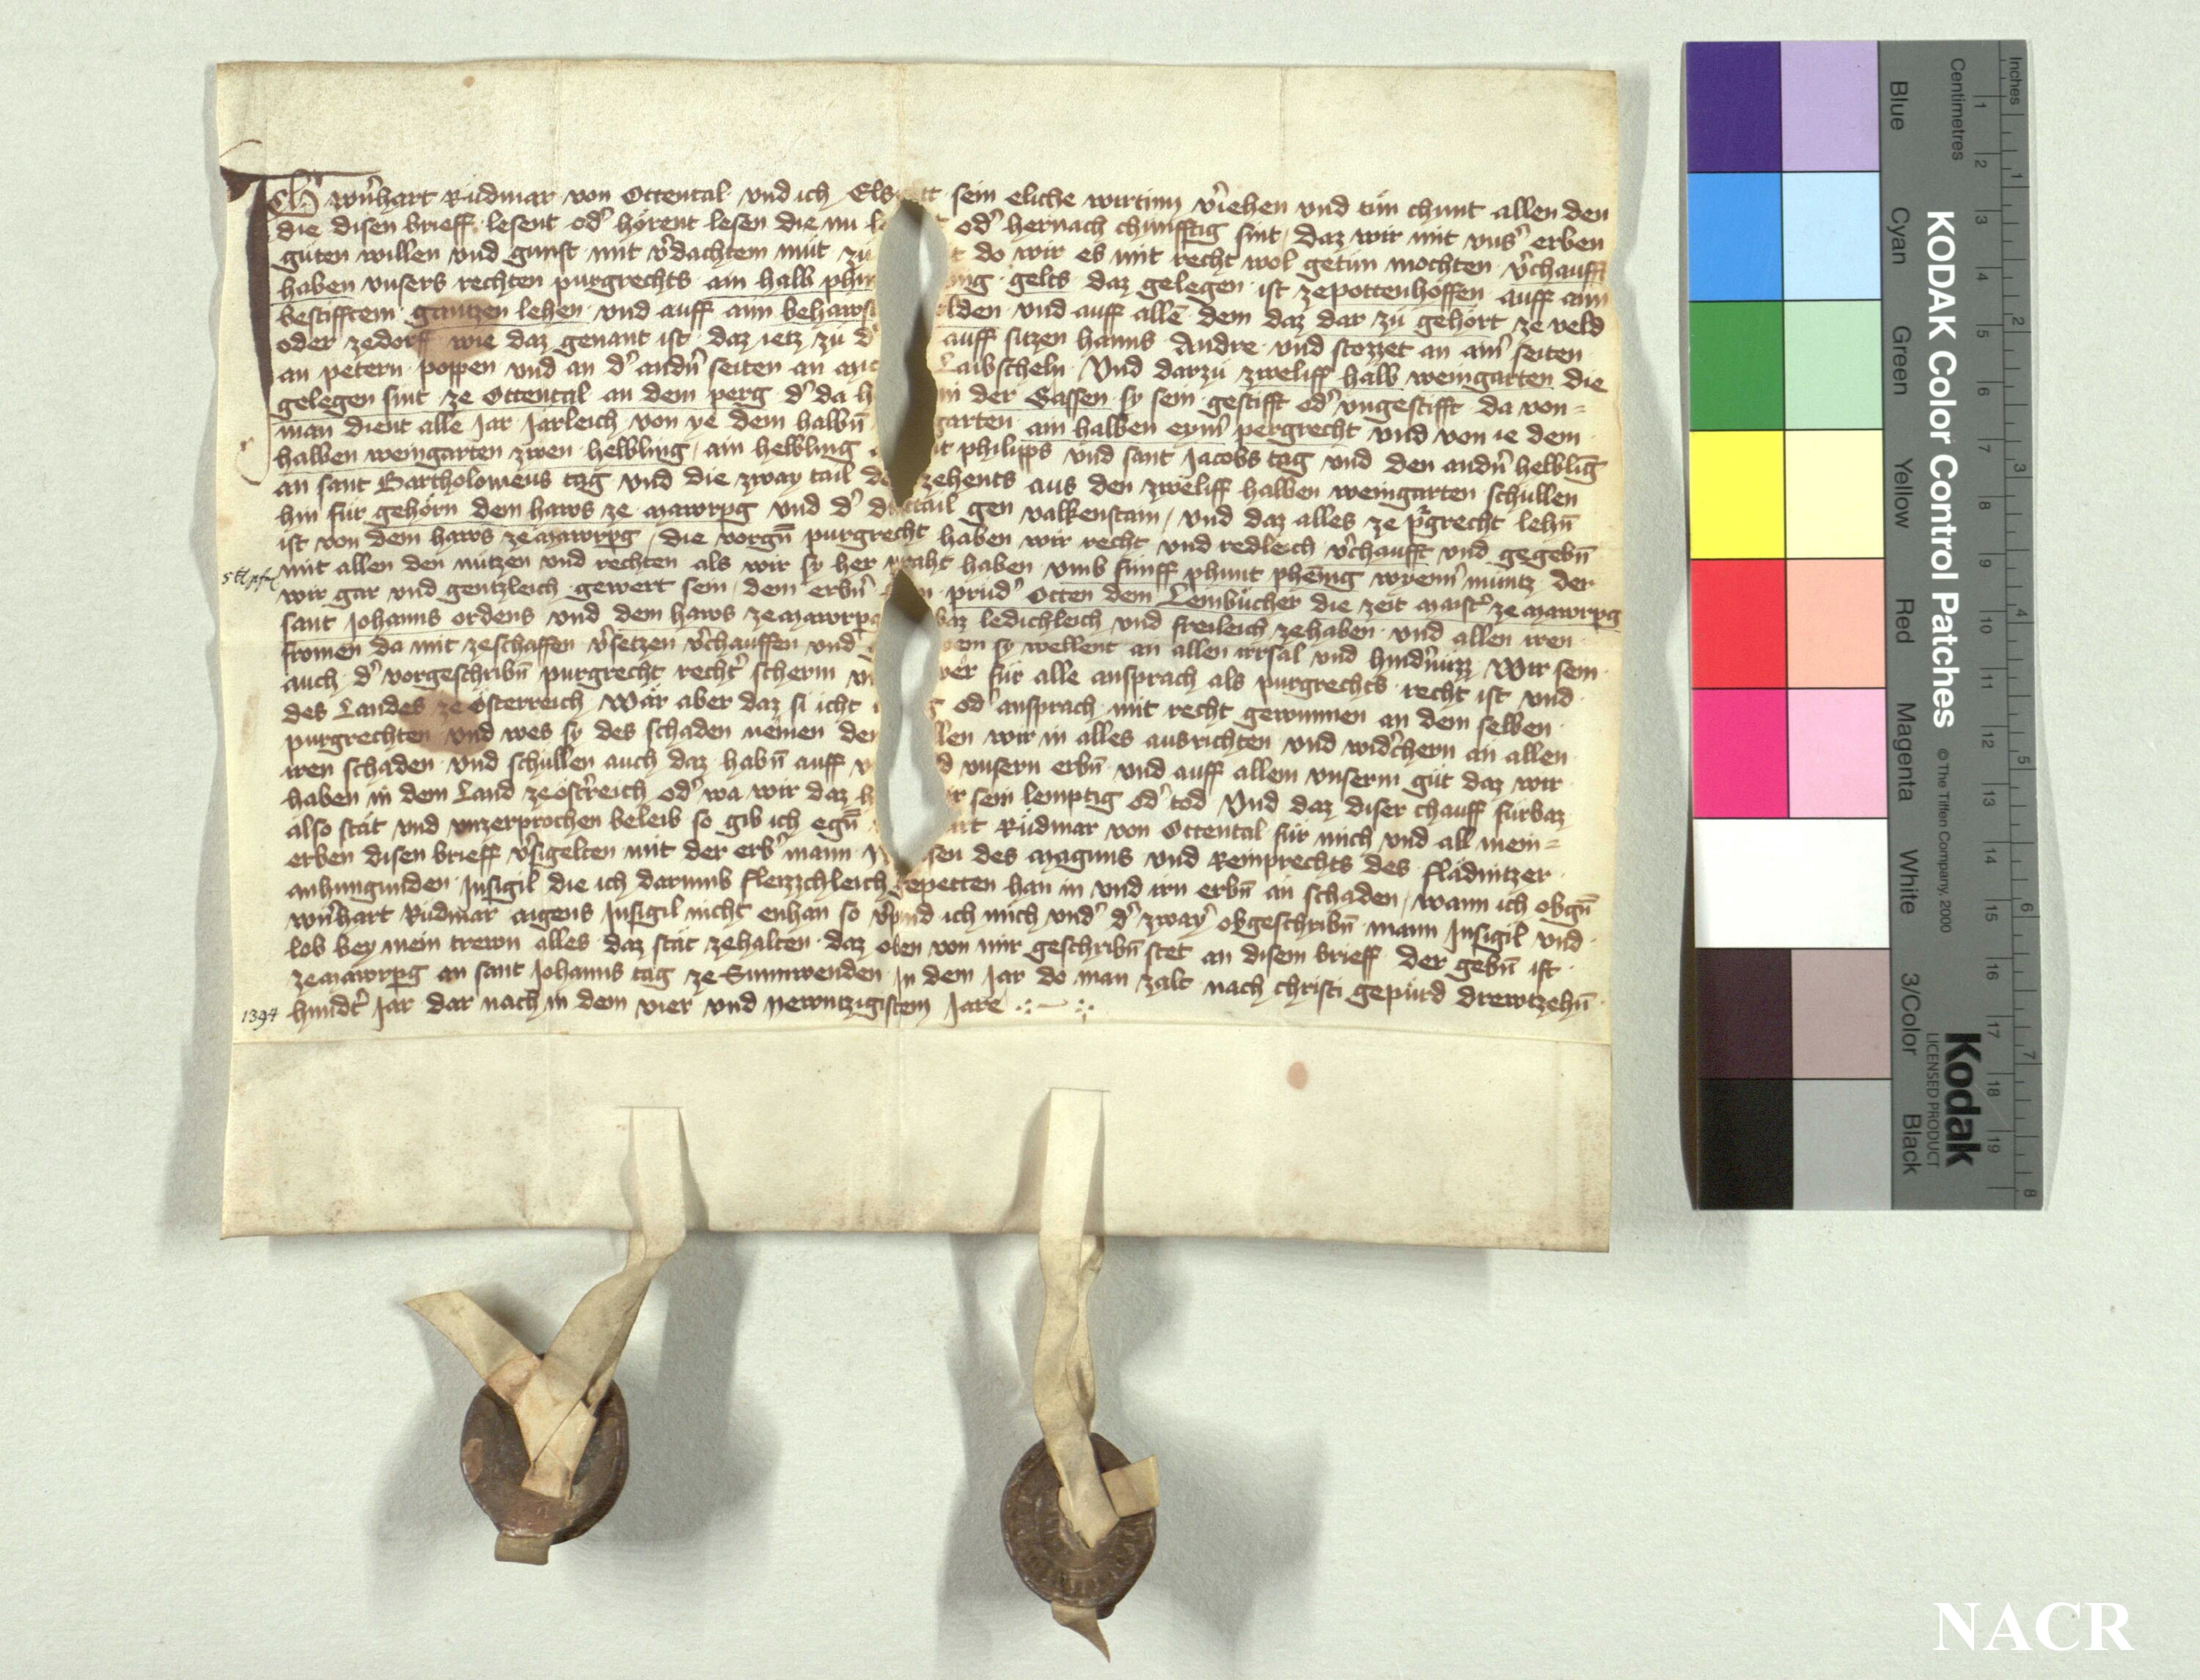 Ich wernhart Rüdmar von Ottental und ich Els tt sein eliche wirtinn v̾iehen und tün chunt allen den
die disen brieff lesent od̾ hörent lesen die nu le od̾ hernach chünfftig sint daz wir mit uns̾ erben
güten willen und gunst mit v̾dachtem müt zü t do wir es mit recht wol getün mochten v̾chaufft
haben unsers rechten purgrechts ain halb phu ing gelts daz gelegen ist ze pottenhoffen auff aim
bestifftem gantzen lehen und auff aim behawst lden und auff alle̅ dem daz dar zü gehört ze veld
oder ze dorff wie daz genant ist daz ietz zü d̾ auff sitzen hanns Andre und stozzet an aim̾ seiten
an petern poppen und an d̾ andn̾ seiten an Laibscheln Und darzü zweliff halb weingarten die
gelegen sint ze Ottental an dem perg d̾ da h in der Gassen sy sein gestifft od̾ ungestifft da von=
man dient alle Jar Jarleich von ye dem halbn̅ garten ain halben eym̾ pergrecht und von ie dem
halben weingarten zwen helbling ain helbling t philipps und sant Jacobs tag und den andn̾ helbli̅g
an sant Bartholomeus tag und die zway tail de zehents aus den zweliff halben weingarten schullen
hin für gehörn dem haws ze Mawrpg und d̾ drittail gen valkenstain / und daz alles ze p̾grecht lehn̅
ist von dem haws ze Mawrpg / die vorgn̅ purgrecht haben wir recht und redleich v̾chaufft und gegebn̅
mit allen den nützen und rechten als wir sy her praht haben umb fünff phunt phe̅nig wyenn̾ müntz der
wir gar und gentzleich gewert sein dem erbn̾ n prüd̾ Otten dem Lembücher die zeit maist̾ ze Mawrpg
sant Johanns ordens und dem haws ze Mawrpg baz ledichleich und freileich ze haben und allen iren
fromen da mit ze schaffen v̾setzen v̾chauffen und g wem sy wellent an allen irrsal und hindn̾üzz Wir sein
auch d̾ vorgeschribn̅ purgrecht recht̾ scherm u wer für alle ansprach als purgrechts recht ist und
des Landes ze Österreich Wär aber daz si icht g od̾ ansprach mit recht gewunnen an dem selben
purgrechten und wes sy des schaden nemen den llen wir in alles ausrichten und wid̾chern an allen
iren schaden und schullen auch daz habn̅ auff u d unsern erbn̅ und auff allem unserm güt daz wir
haben in dem Land ze Öst̾reich od̾ wa wir daz h ir sein lemptig od̾ tod Und daz diser chauff fürbaz
also stät und unzerprochen beleib so gib ich egn̅ art Rüdmar von Ottental für mich und all mein=
erben disen brieff v̾sigelten mit der erb̾ mann sen des Maguns und Reinprechts des flädnitzer
anhungunden Insigil die ich darumb fleizzchleich gepetten han in und irn erbn̅ an schaden / wann ich obgn̅
wernhart Rüdmar aigens Insigil nicht enhan so v̾pind ich mich und̾ d̾ zway̾ obgeschribn̅ mann Insigil und
lob bey mein trewn alles daz stät ze halten daz oben von mir geschribn̅ stet an disem brieff der gebn̅ ist
ze Mawrpg an sant Johanns tag ze Sunnwenden In dem Jar do man zalt nach christi gepürd drewtzehn̅
hundt̾ Jar dar nach in dem vier und Newntzigistem Jare
1394
KODAK Color Control Patches
© The Tiffen Company, 2000
Kodak
LICENSED PRODUCT
Blue Cyan Green Yellow Red Magenta White 3/Color Black
Centimetres 1 2 3 4 5 6 7 8 9 10 11 12 13 14 15 16 17 18 19
Inches 1 2 3 4 5 6 7 8
NACR